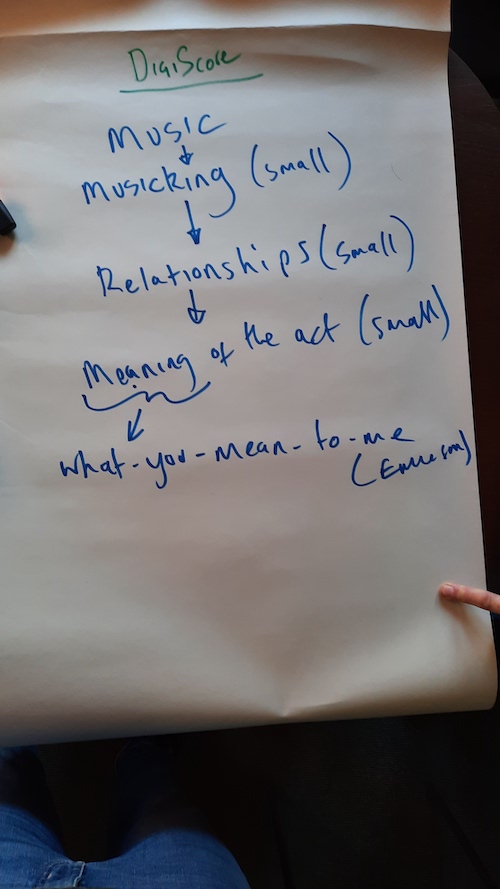 DigiScore
Music
Musicking (small)
Relationships (small)
Meaning of the act (small)
what-you-mean-to-me
(Emmerson)